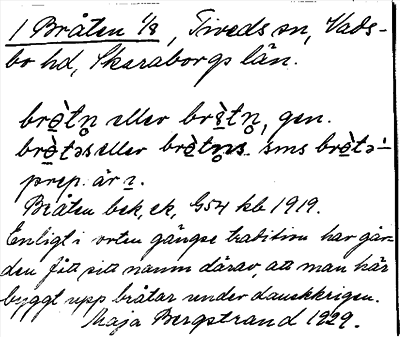 1 Bråten 1/8, Tiveds sn, Vads-
bo hd, Skaraborgs län.
brø̀tn̥ eller brø̀tn̥, gen.
brø̀təs eller brø̀tn̥s sms brø̀tə-
prep. är ı.
Bråten bek. ek, G54 kb 1919.
Enligt i orten gängse tradition har går-
den fått sitt namn därav, att man här
byggt upp bråtar under danskkrigen.
Maja Bergstrand 1929.